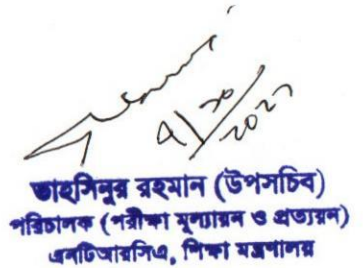 তাহসিনুর রহমান (উপসচিব)
পরিচালক (পরীক্ষা মূল্যায়ন ও প্রত্যয়ন)
এনটিআরসিএ, শিক্ষা মন্ত্রণালয়